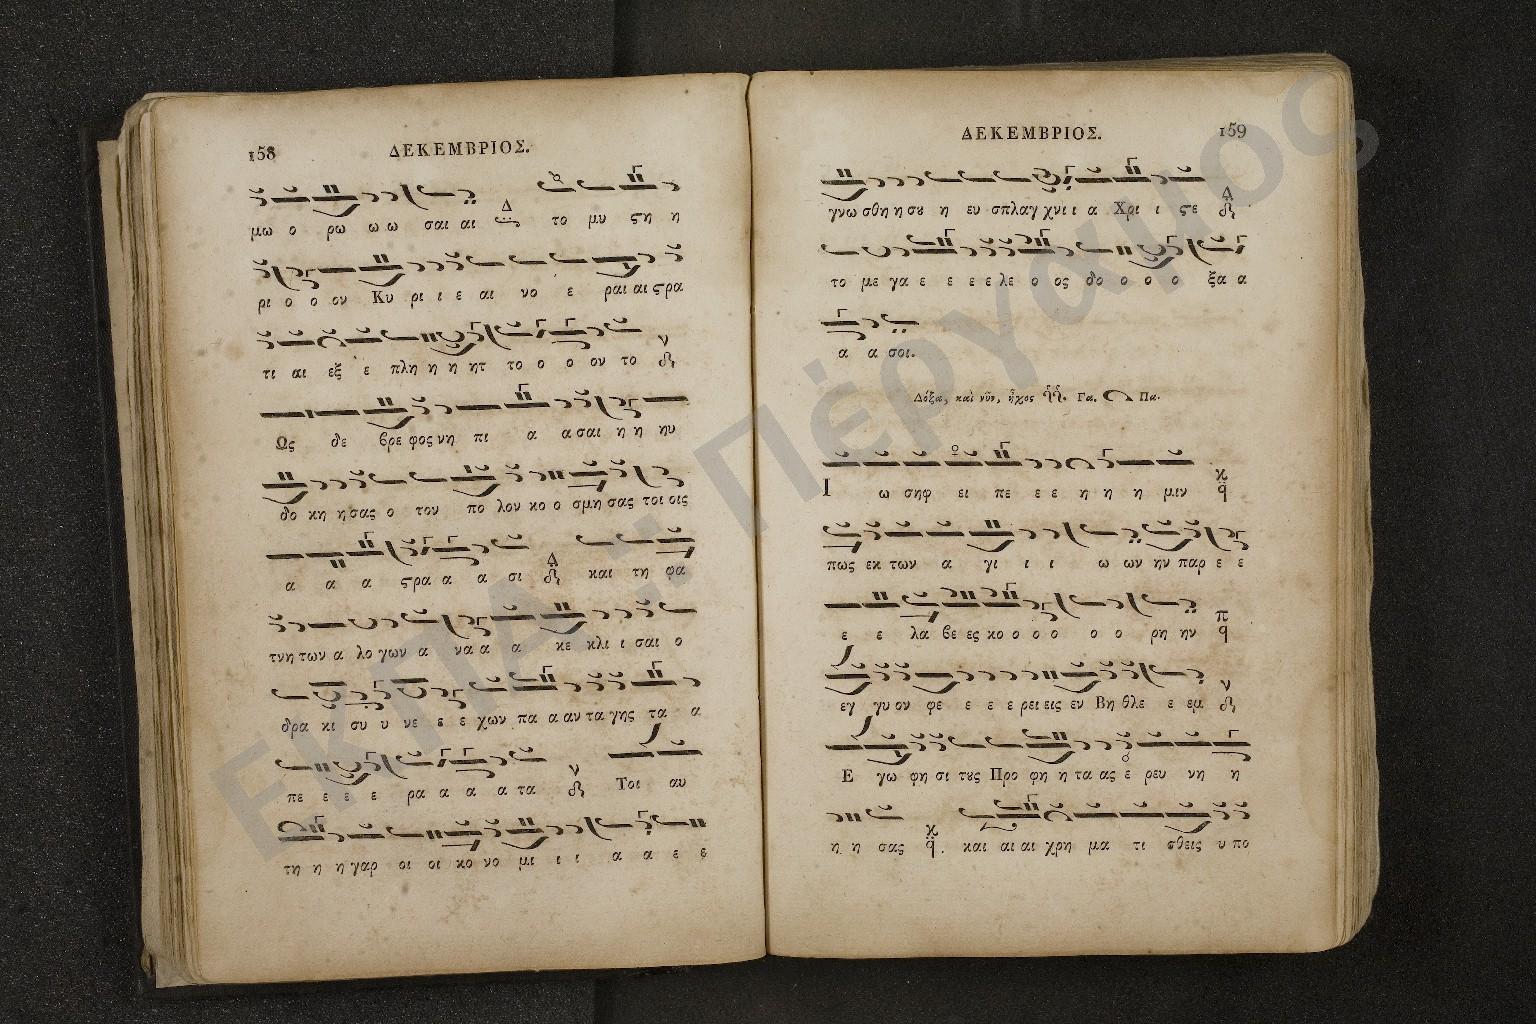 158
ΔΕΚΕΜΒΡΙΟΣ.
μω ο ρω ω ω σαι αι Δ το μυ ϛη η
ρι ο ο ον Κυ ρι ι ε αι νο ε ραι αι ϛρα
τι αι εξ ε πλη η η ητ το ο ο ον το
Ως δε βρε φος νη πι α α σαι η η ηυ
δο κη η σας ο τον πο λον κο ο σμη σας τοι οις
α α α ϛρα α α σι και τη φα
τνη των α λο γων α να α α κε κλι ι σαι ο
δρα κι συ υ νε ε ε χων πα α αν τα γης τα α
πε ε ε ε ρα α α α τα Τοι αυ
τη η η γαρ οι οι κο νο μι ι ι α α ε ε
159
ΔΕΚΕΜΒΡΙΟΣ.
γνω σθη η σȣ η ευ σπλαγ χνι ι α Χρι ι ϛε
το με γα ε ε ε ε λε ο ος δο ο ο ο ξα α
α α σοι.
Δόξα, καὶ νῦν, ἦχος Γα. Πα.
Ι ω σηφ ει πε ε ε η η η μιν
πως εκ των α γι ι ι ω ων ην παρ ε ε
ε ε λα βε ες κο ο ο ο ο ο ρη ην
εγ γυ ον φε ε ε ε ρει εις εν Βη θλε ε εμ
Ε γω φη σι τȣς Προ φη η τα ας ε ρευ νη η
η η σας και αι αι χρη μα τι σθεις υ πο
ΕΚΠΑ
Πέργαμος